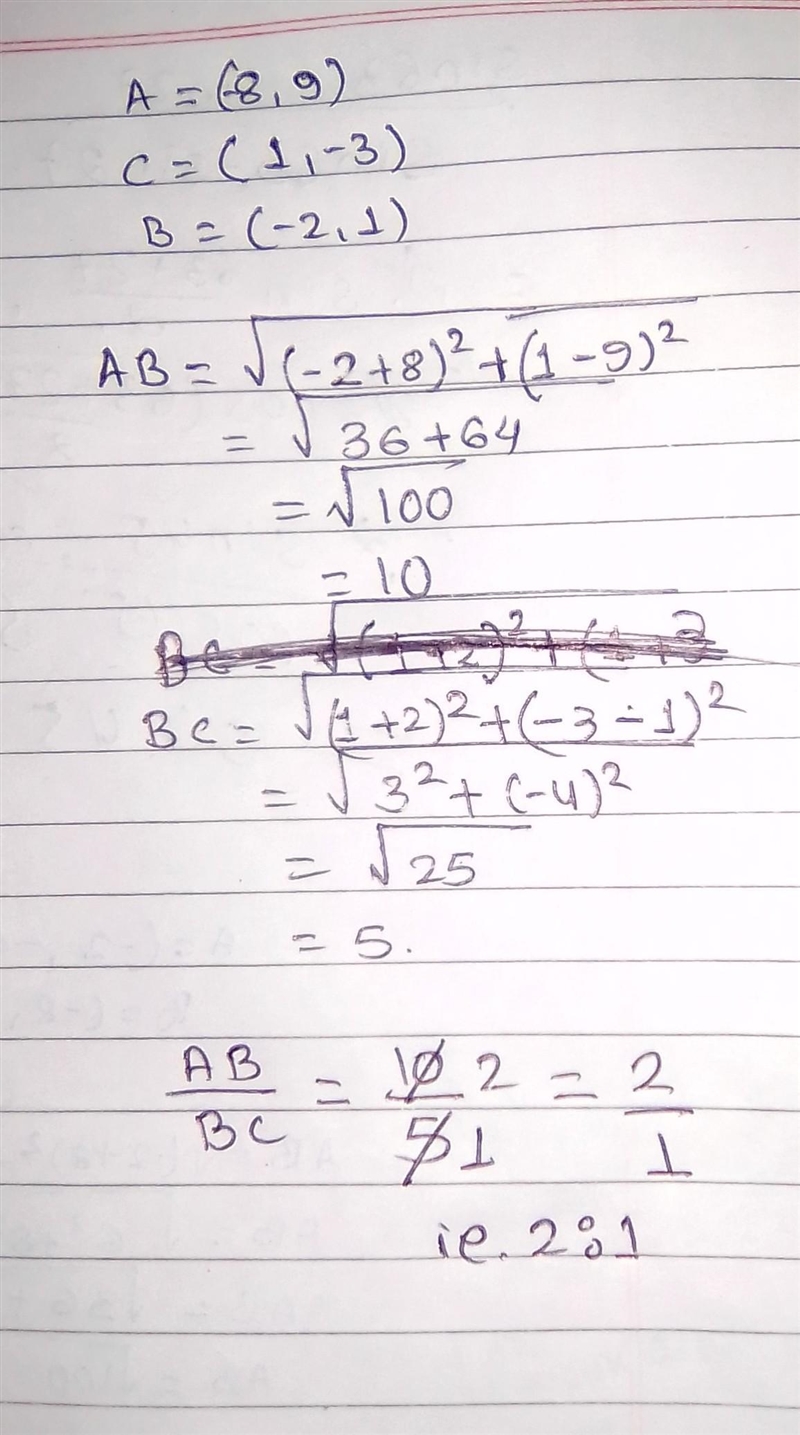 A = (-8, 9)
C = (1, -3)
B = (-2, 1)
AB = √(-2+8)² + (1-9)²
= √36+64
= √100
= 10
BC = √(1+2)² + (-3-1)²
= √3² + (-4)²
= √25
= 5.
AB/BC = 10 2/5 1 = 2/1
ie. 2:1